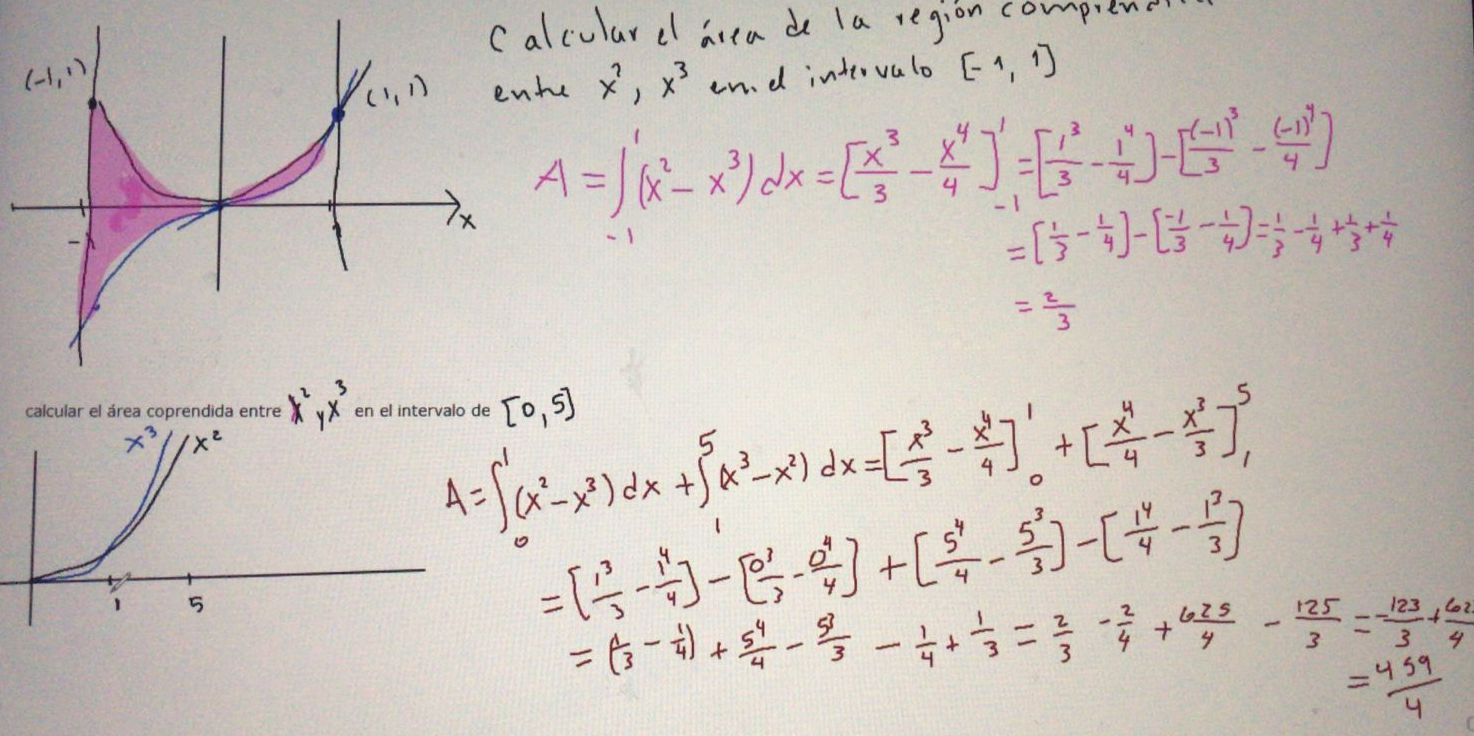 Calcular el área de la región
entre x², x³ en el intervalo [-1, 1]
(-1,1)
(1,1)
x
-1
A = ∫_{-1}^{1} (x² - x³) dx = [x³/3 - x⁴/4]_{-1}^{1} = [1³/3 - 1⁴/4] - [(-1)³/3 - (-1)⁴/4]
= [1/3 - 1/4] - [-1/3 - 1/4] = 1/3 - 1/4 + 1/3 + 1/4
= 2/3
calcular el área coprendida entre x² y x³ en el intervalo de [0,5]
x³ x²
1 5
A = ∫_{0}^{1} (x² - x³) dx + ∫_{1}^{5} (x³ - x²) dx = [x³/3 - x⁴/4]_{0}^{1} + [x⁴/4 - x³/3]_{1}^{5}
= [1³/3 - 1⁴/4] - [0³/3 - 0⁴/4] + [5⁴/4 - 5³/3] - [1⁴/4 - 1³/3]
= (1/3 - 1/4) + 5⁴/4 - 5³/3 - 1/4 + 1/3 = 2/3 - 2/4 + 625/4 - 125/3 = -123/3 +
= 459/4